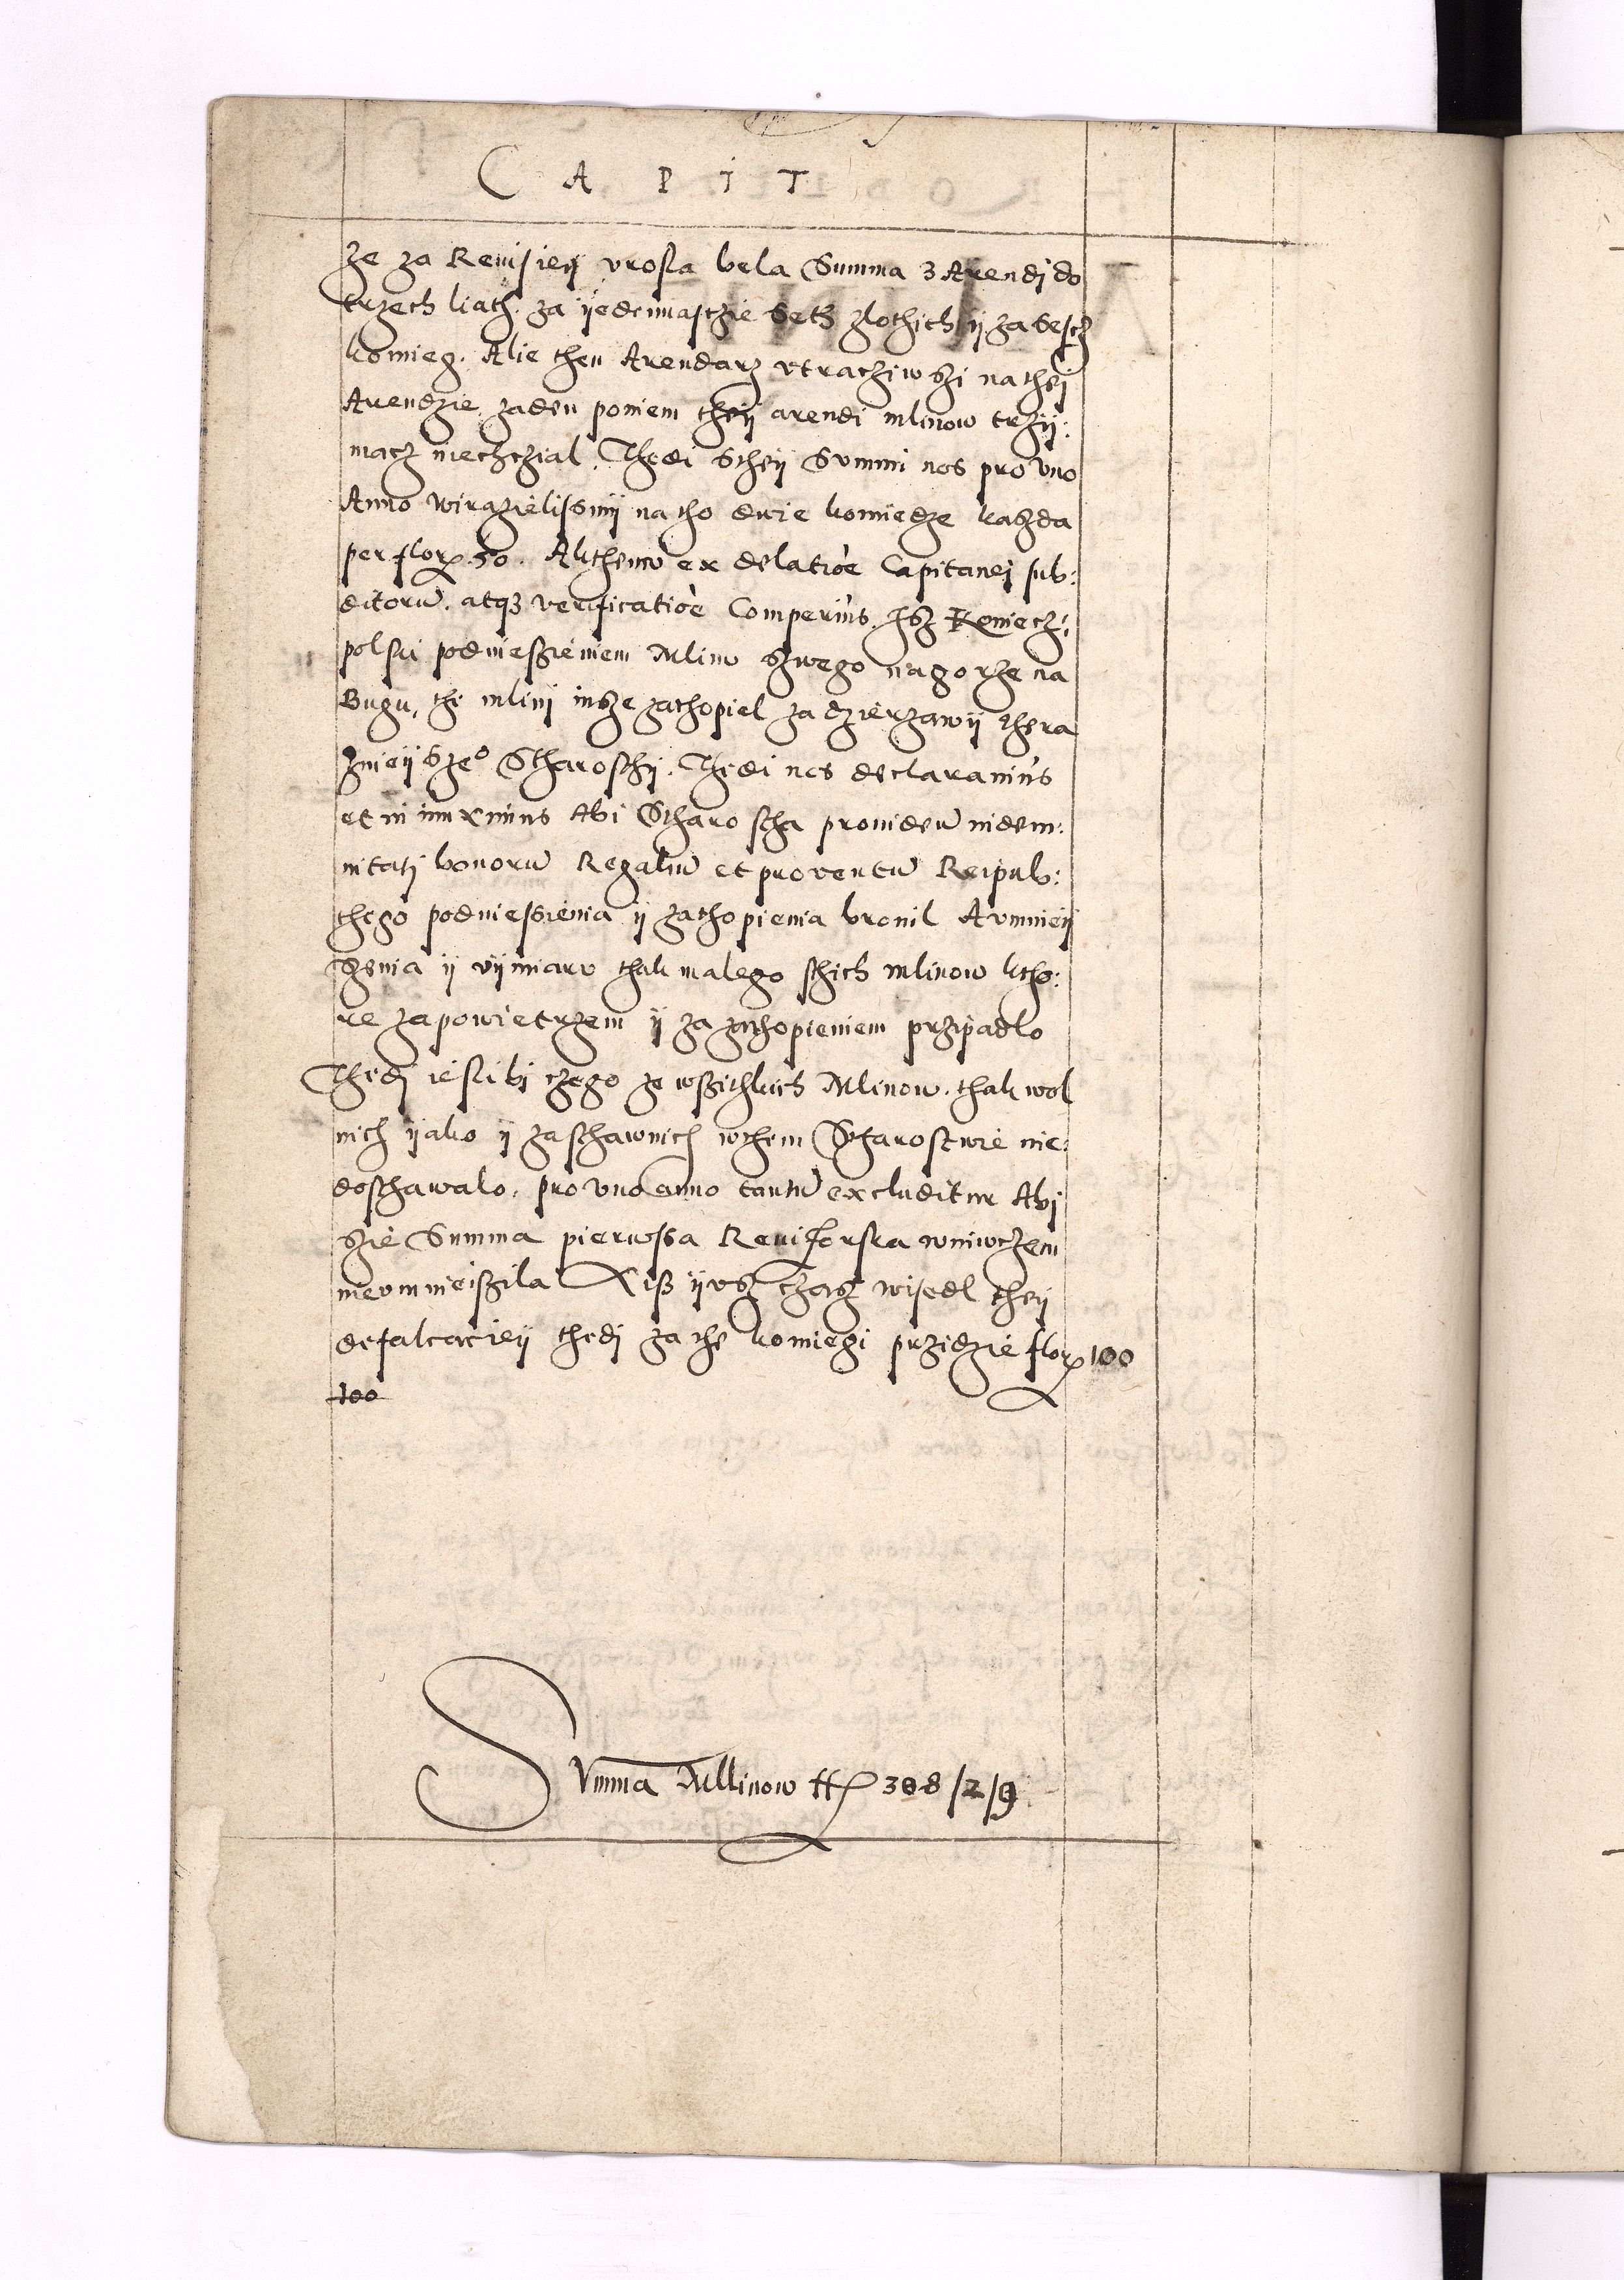 C A P I T
Ze za Reuisieij vrosla bela Summa z Arendj do
trzech liath. za ijedennasczie Seth zlothich ij za Sescz
komieg. Alie then Arendarz vtracziwszi na theij
Arendzie, zaden poniem theij arendi mlinow trzij:
macz niechczial. Thedi Stheij Summi nos pro vno
Anno wirazielissmij na tho dwie komiedze kaszda
per flor. 50. A kthemu ex delatioe Capitanej sub:
ditoru. atq3 verificatioe Comperims. Isz Koniecz:
polski podniessieniem Mlinu szwego nagorze na
Bugu, thi mlinj insze zathopiel za dzierzawij thera
znieijsze° Stharosthij. Thedi nos declarauims
et iniunximus Abi Stharostha prouideu indem:
nitatj bonoru Regaliu et prouentu Reipub:
thego podniessienia ij zathopienia bronil A vmnieij
szenia ij vijmiaru thak malego sthich mlinow ktho:
re za powietrzem ij za zathopieniem przipadlo
Thedj iesli bj czego ze wszithkich Mlinow. thak wol
nich ijako ij zasthawnich wthem Starostwie nie:
dosthawalo, pro vno anno tantu excluditur Abj
szie Summa pierwssa Reuisorska wniwczem
nievmnieiszila A isz ijusz czasz wisedl theij
defalcacieij thedj za the komiegi przidzie flor 100
100
Summa Mlinow ff 308/2/9